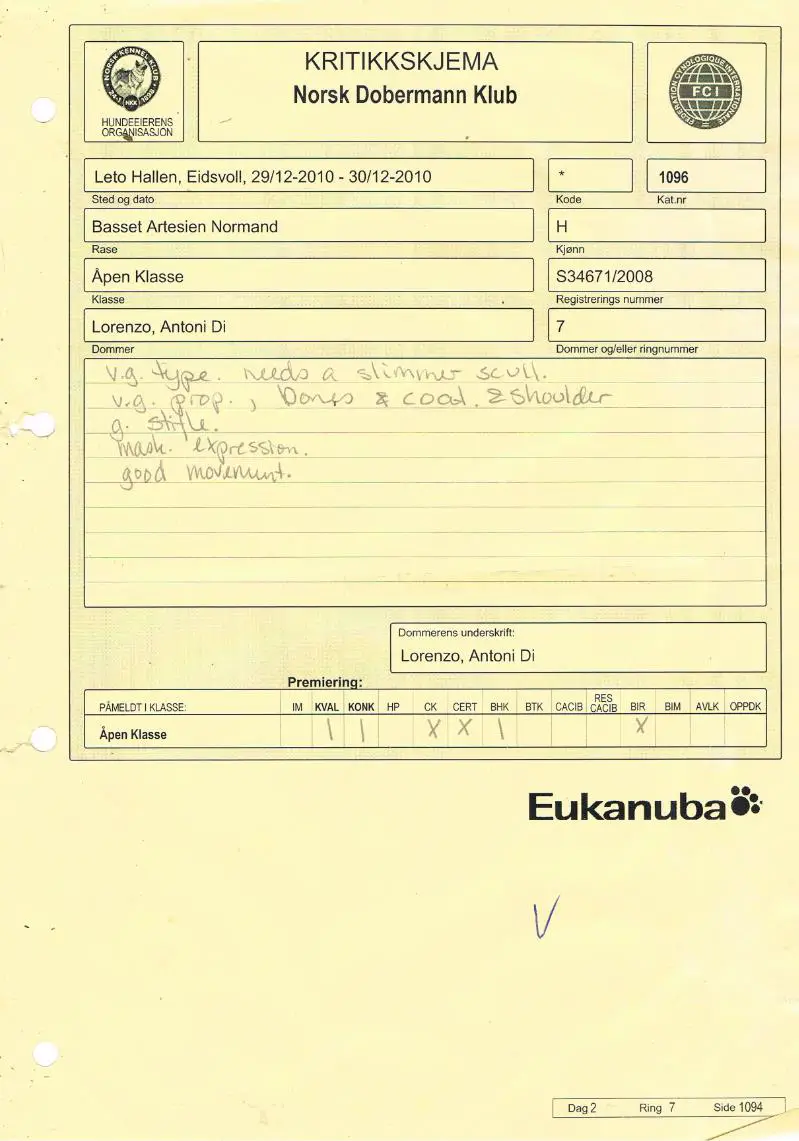 NORSK KENNEL KLUB
NKK 1898
HUNDEEIERENS
ORGANISASJON
KRITIKKSKJEMA
Norsk Dobermann Klub
FEDERATION CYNOLOGIQUE INTERNATIONALE
FCI
Leto Hallen, Eidsvoll, 29/12-2010 - 30/12-2010
*
1096
Sted og dato
Kode
Kat.nr
Basset Artesien Normand
H
Rase
Kjønn
Åpen Klasse
S34671/2008
Klasse
Registrerings nummer
Lorenzo, Antoni Di
7
Dommer
Dommer og/eller ringnummer
v.g. type. needs a slimmer scull.
v.g. prop., bones & coat. & shoulder
g. stifle.
mask. expression.
good movement.
Dommerens underskrift:
Lorenzo, Antoni Di
Premiering:
PÅMELDT I KLASSE: IM KVAL KONK HP CK CERT BHK BTK CACIB RES CACIB BIR BIM AVLK OPPDK
Åpen Klasse \ | X X \ X
Eukanuba
V
Dag 2 Ring 7 Side 1094